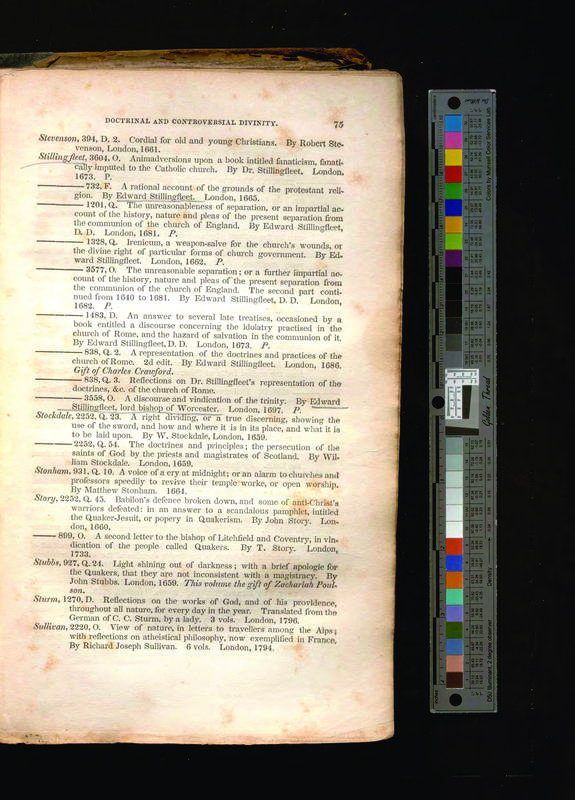 DOCTRINAL AND CONTROVERSIAL DIVINITY. 75
Stevenson, 394, D. 2. Cordial for old and young Christians. By Robert Ste-
venson, London, 1661.
Stillingfleet, 3604, O. Animadversions upon a book intitled fanaticism, fanati-
cally imputed to the Catholic church. By Dr. Stillingfleet. London,
1673. P.
——— 732, F. A rational account of the grounds of the protestant reli-
gion. By Edward Stillingfleet. London, 1665.
——— 1201, Q. The unreasonableness of separation, or an impartial ac-
count of the history, nature and pleas of the present separation from
the communion of the church of England. By Edward Stillingfleet,
D. D. London, 1681. P.
——— 1328, Q. Irenicum, a weapon-salve for the church's wounds, or
the divine right of particular forms of church government. By Ed-
ward Stillingfleet. London, 1662. P.
——— 3577, O. The unreasonable separation; or a further impartial ac-
count of the history, nature and pleas of the present separation from
the communion of the church of England. The second part conti-
nued from 1640 to 1681. By Edward Stillingfleet, D. D. London,
1682. P.
——— 1483, D. An answer to several late treatises, occasioned by a
book entitled a discourse concerning the idolatry practised in the
church of Rome, and the hazard of salvation in the communion of it.
By Edward Stillingfleet, D. D. London, 1673. P.
——— 838, Q. 2. A representation of the doctrines and practices of the
church of Rome. 2d edit. By Edward Stillingfleet. London, 1686.
Gift of Charles Crawford.
——— 838, Q. 3. Reflections on Dr. Stillingfleet's representation of the
doctrines, &c. of the church of Rome.
——— 3558, O. A discourse and vindication of the trinity. By Edward
Stillingfleet, lord bishop of Worcester. London, 1697. P.
Stockdale, 2252, Q. 23. A right dividing, or a true discerning, showing the
use of the sword, and how and where it is in its place, and what it is
to be laid upon. By W. Stockdale, London, 1659.
——— 2252, Q. 54. The doctrines and principles; the persecution of the
saints of God by the priests and magistrates of Scotland. By Wil-
liam Stockdale. London, 1659.
Stonham, 931, Q. 10. A voice of a cry at midnight; or an alarm to churches and
professors speedily to revive their temple-works, or open worship.
By Matthew Stonham. 1664.
Story, 2252, Q. 45. Babilon's defence broken down, and some of anti-Christ's
warriors defeated: in an answer to a scandalous pamphlet, intitled
the Quaker-Jesuit, or popery in Quakerism. By John Story. Lon-
don, 1660.
——— 899, O. A second letter to the bishop of Litchfield and Coventry, in vin-
dication of the people called Quakers. By T. Story. London,
1733.
Stubbs, 927, Q. 24. Light shining out of darkness; with a brief apologie for
the Quakers, that they are not inconsistent with a magistracy. By
John Stubbs. London, 1659. This volume the gift of Zachariah Poul-
son.
Sturm, 1270, D. Reflections on the works of God, and of his providence,
throughout all nature, for every day in the year. Translated from the
German of C. C. Sturm, by a lady. 3 vols. London, 1796.
Sullivan, 2220, O. View of nature, in letters to travellers among the Alps;
with reflections on atheistical philosophy, now exemplified in France,
By Richard Joseph Sullivan. 6 vols. London, 1794.
Golden Thread